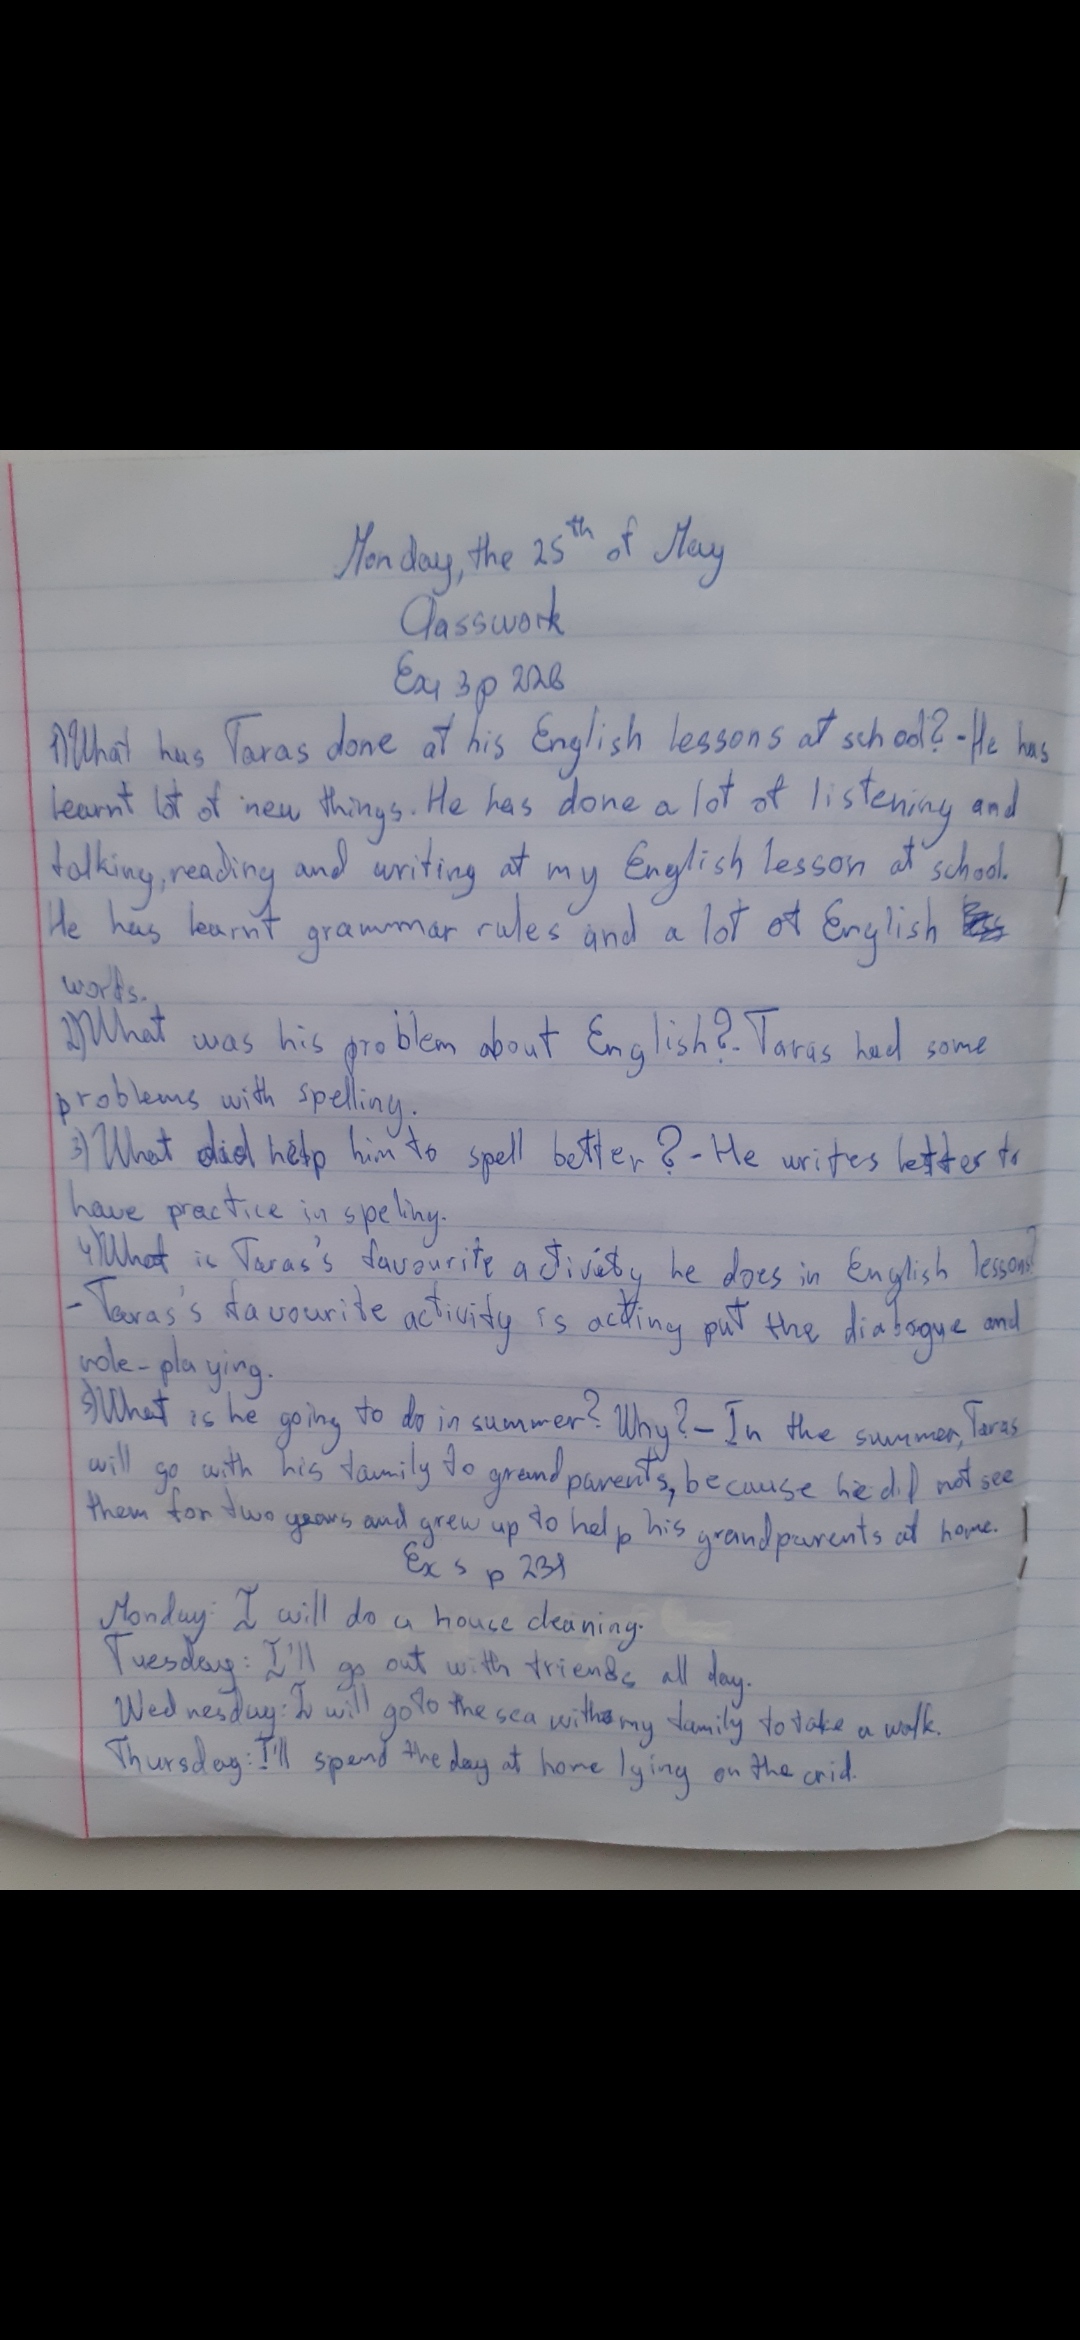 Monday, the 25th of May
Classwork
Ex 3 p 228
1) What has Taras done at his English lessons at school? - He has
learnt lot of new things. He has done a lot of listening and
talking, reading and writing at my English lesson at school.
He has learnt grammar rules and a lot of English
words.
2) What was his problem about English? - Taras had some
problems with spelling.
3) What did help him to spell better? - He writes letter to
have practice in speling.
4) What is Taras's favourite activity he does in English lessons?
- Taras's favourite activity is acting put the dialogue and
role-playing.
5) What is he going to do in summer? Why? - In the summer, Taras
will go with his family to grandparents, because he did not see
them for two years and grew up to help his grandparents at home.
Ex 5 p 231
Monday: I will do a house cleaning.
Tuesday: I'll go out with friends all day.
Wednesday: I will go to the sea with my family to take a walk.
Thursday: I'll spend the day at home lying on the